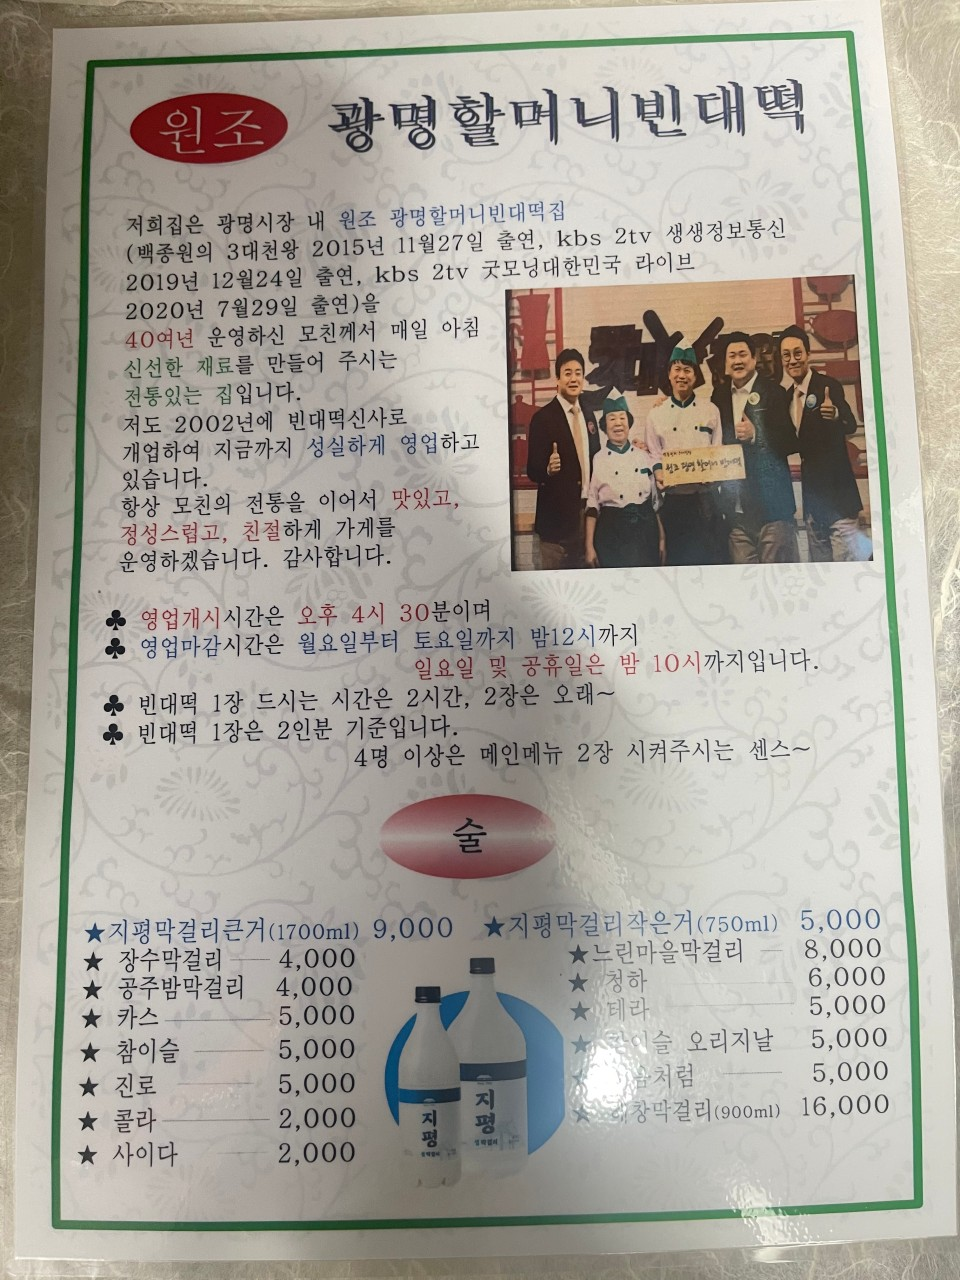 원조 광명할머니빈대떡
저희집은 광명시장 내 원조 광명할머니빈대떡집
(백종원의 3대천왕 2015년 11월27일 출연, kbs 2tv 생생정보통신
2019년 12월24일 출연, kbs 2tv 굿모닝대한민국 라이브
2020년 7월29일 출연)을
40여년 운영하신 모친께서 매일 아침
신선한 재료를 만들어 주시는
전통있는 집입니다.
저도 2002년에 빈대떡신사로
개업하여 지금까지 성실하게 영업하고
있습니다.
항상 모친의 전통을 이어서 맛있고,
정성스럽고, 친절하게 가게를
운영하겠습니다. 감사합니다.
원조 광명 할머니 빈대떡
♣ 영업개시시간은 오후 4시 30분이며
♣ 영업마감시간은 월요일부터 토요일까지 밤12시까지
일요일 및 공휴일은 밤 10시까지입니다.
♣ 빈대떡 1장 드시는 시간은 2시간, 2장은 오래~
♣ 빈대떡 1장은 2인분 기준입니다.
4명 이상은 메인메뉴 2장 시켜주시는 센스~
술
★지평막걸리큰거(1700ml) 9,000
★ 장수막걸리 4,000
★ 공주밤막걸리 4,000
★ 카스 5,000
★ 참이슬 5,000
★ 진로 5,000
★ 콜라 2,000
★ 사이다 2,000
★지평막걸리작은거(750ml) 5,000
★느린마을막걸리 8,000
★ 청하 6,000
★ 테라 5,000
★ 오리지날 5,000
처럼 5,000
★ 막걸리(900ml) 16,000
지평
지평